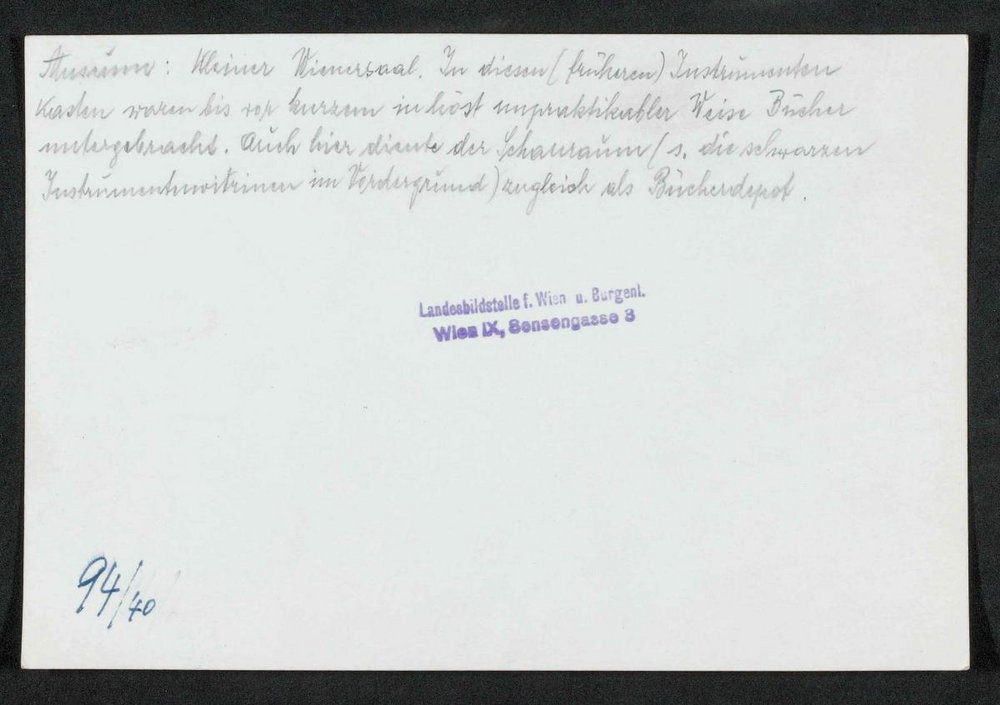 Museum: Kleiner Wienersaal. In diesen (früheren) Instrumenten
Kasten waren bis vor kurzem in höst unpraktikabler Weise Bücher
untergebracht. Auch hier diente der Schauraum (s. die schwarzen
Instrumentenvitrinen im Vordergrund) zugleich als Bücherdepot.
Landesbildstelle f. Wien u. Burgenl.
Wien IX, Sensengasse 3
94/40